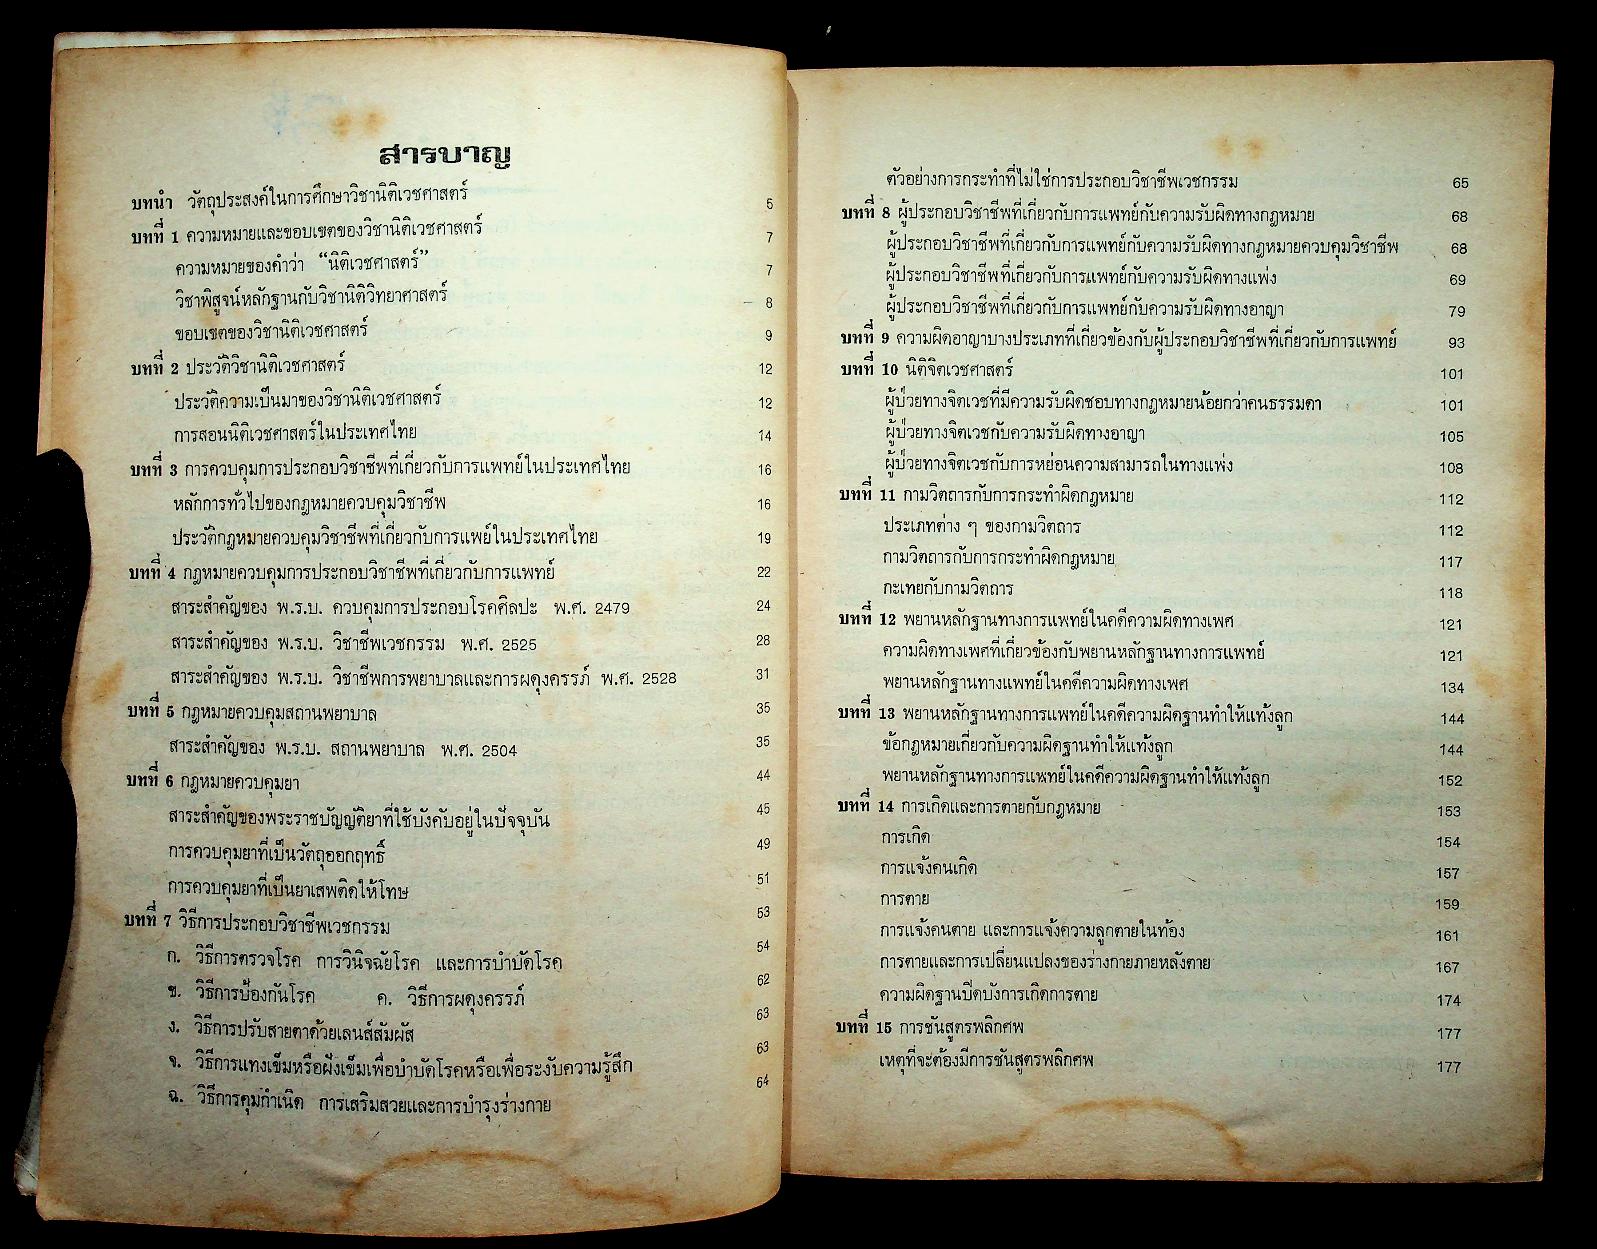 สารบาญ
บทนำ วัตถุประสงค์ในการศึกษาวิชานิติเวชศาสตร์ 5
บทที่ 1 ความหมายและขอบเขตของวิชานิติเวชศาสตร์ 7
ความหมายของคำว่า “นิติเวชศาสตร์” 7
วิชาพิสูจน์หลักฐานกับวิชานิติวิทยาศาสตร์ 8
ขอบเขตของวิชานิติเวชศาสตร์ 9
บทที่ 2 ประวัติวิชานิติเวชศาสตร์ 12
ประวัติความเป็นมาของวิชานิติเวชศาสตร์ 12
การสอนนิติเวชศาสตร์ในประเทศไทย 14
บทที่ 3 การควบคุมการประกอบวิชาชีพที่เกี่ยวกับการแพทย์ในประเทศไทย 16
หลักการทั่วไปของกฎหมายควบคุมวิชาชีพ 16
ประวัติกฎหมายควบคุมวิชาชีพที่เกี่ยวกับการแพย์ในประเทศไทย 19
บทที่ 4 กฎหมายควบคุมการประกอบวิชาชีพที่เกี่ยวกับการแพทย์ 22
สาระสำคัญของ พ.ร.บ. ควบคุมการประกอบโรคศิลปะ พ.ศ. 2479 24
สาระสำคัญของ พ.ร.บ. วิชาชีพเวชกรรม พ.ศ. 2525 28
สาระสำคัญของ พ.ร.บ. วิชาชีพการพยาบาลและการผดุงครรภ์ พ.ศ. 2528 31
บทที่ 5 กฎหมายควบคุมสถานพยาบาล 35
สาระสำคัญของ พ.ร.บ. สถานพยาบาล พ.ศ. 2504 35
บทที่ 6 กฎหมายควบคุมยา 44
สาระสำคัญของพระราชบัญญัติยาที่ใช้บังคับอยู่ในปัจจุบัน 45
การควบคุมยาที่เป็นวัตถุออกฤทธิ์ 49
การควบคุมยาที่เป็นยาเสพติดให้โทษ 51
บทที่ 7 วิธีการประกอบวิชาชีพเวชกรรม 53
ก. วิธีการตรวจโรค การวินิจฉัยโรค และการบำบัดโรค 54
ข. วิธีการป้องกันโรค ค. วิธีการผดุงครรภ์ 62
ง. วิธีการปรับสายตาด้วยเลนส์สัมผัส 63
จ. วิธีการแทงเข็มหรือฝังเข็มเพื่อบำบัดโรคหรือเพื่อระงับความรู้สึก 63
ฉ. วิธีการคุมกำเนิด การเสริมสวยและการบำรุงร่างกาย 64
ตัวอย่างการกระทำที่ไม่ใช่การประกอบวิชาชีพเวชกรรม 65
บทที่ 8 ผู้ประกอบวิชาชีพที่เกี่ยวกับการแพทย์กับความรับผิดทางกฎหมาย 68
ผู้ประกอบวิชาชีพที่เกี่ยวกับการแพทย์กับความรับผิดทางกฎหมายควบคุมวิชาชีพ 68
ผู้ประกอบวิชาชีพที่เกี่ยวกับการแพทย์กับความรับผิดทางแพ่ง 69
ผู้ประกอบวิชาชีพที่เกี่ยวกับการแพทย์กับความรับผิดทางอาญา 79
บทที่ 9 ความผิดอาญาบางประเภทที่เกี่ยวข้องกับผู้ประกอบวิชาชีพที่เกี่ยวกับการแพทย์ 93
บทที่ 10 นิติจิตเวชศาสตร์ 101
ผู้ป่วยทางจิตเวชที่มีความรับผิดชอบทางกฎหมายน้อยกว่าคนธรรมดา 101
ผู้ป่วยทางจิตเวชกับความรับผิดทางอาญา 105
ผู้ป่วยทางจิตเวชกับการหย่อนความสามารถในทางแพ่ง 108
บทที่ 11 กามวิตถารกับการกระทำผิดกฎหมาย 112
ประเภทต่าง ๆ ของกามวิตถาร 112
กามวิตถารกับการกระทำผิดกฎหมาย 117
กะเทยกับกามวิตถาร 118
บทที่ 12 พยานหลักฐานทางการแพทย์ในคดีความผิดทางเพศ 121
ความผิดทางเพศที่เกี่ยวข้องกับพยานหลักฐานทางการแพทย์ 121
พยานหลักฐานทางแพทย์ในคดีความผิดทางเพศ 134
บทที่ 13 พยานหลักฐานทางการแพทย์ในคดีความผิดฐานทำให้แท้งลูก 144
ข้อกฎหมายเกี่ยวกับความผิดฐานทำให้แท้งลูก 144
พยานหลักฐานทางการแพทย์ในคดีความผิดฐานทำให้แท้งลูก 152
บทที่ 14 การเกิดและการตายกับกฎหมาย 153
การเกิด 154
การแจ้งคนเกิด 157
การตาย 159
การแจ้งคนตาย และการแจ้งความลูกตายในท้อง 161
การตายและการเปลี่ยนแปลงของร่างกายภายหลังตาย 167
ความผิดฐานปิดบังการเกิดการตาย 174
บทที่ 15 การชันสูตรพลิกศพ 177
เหตุที่จะต้องมีการชันสูตรพลิกศพ 177